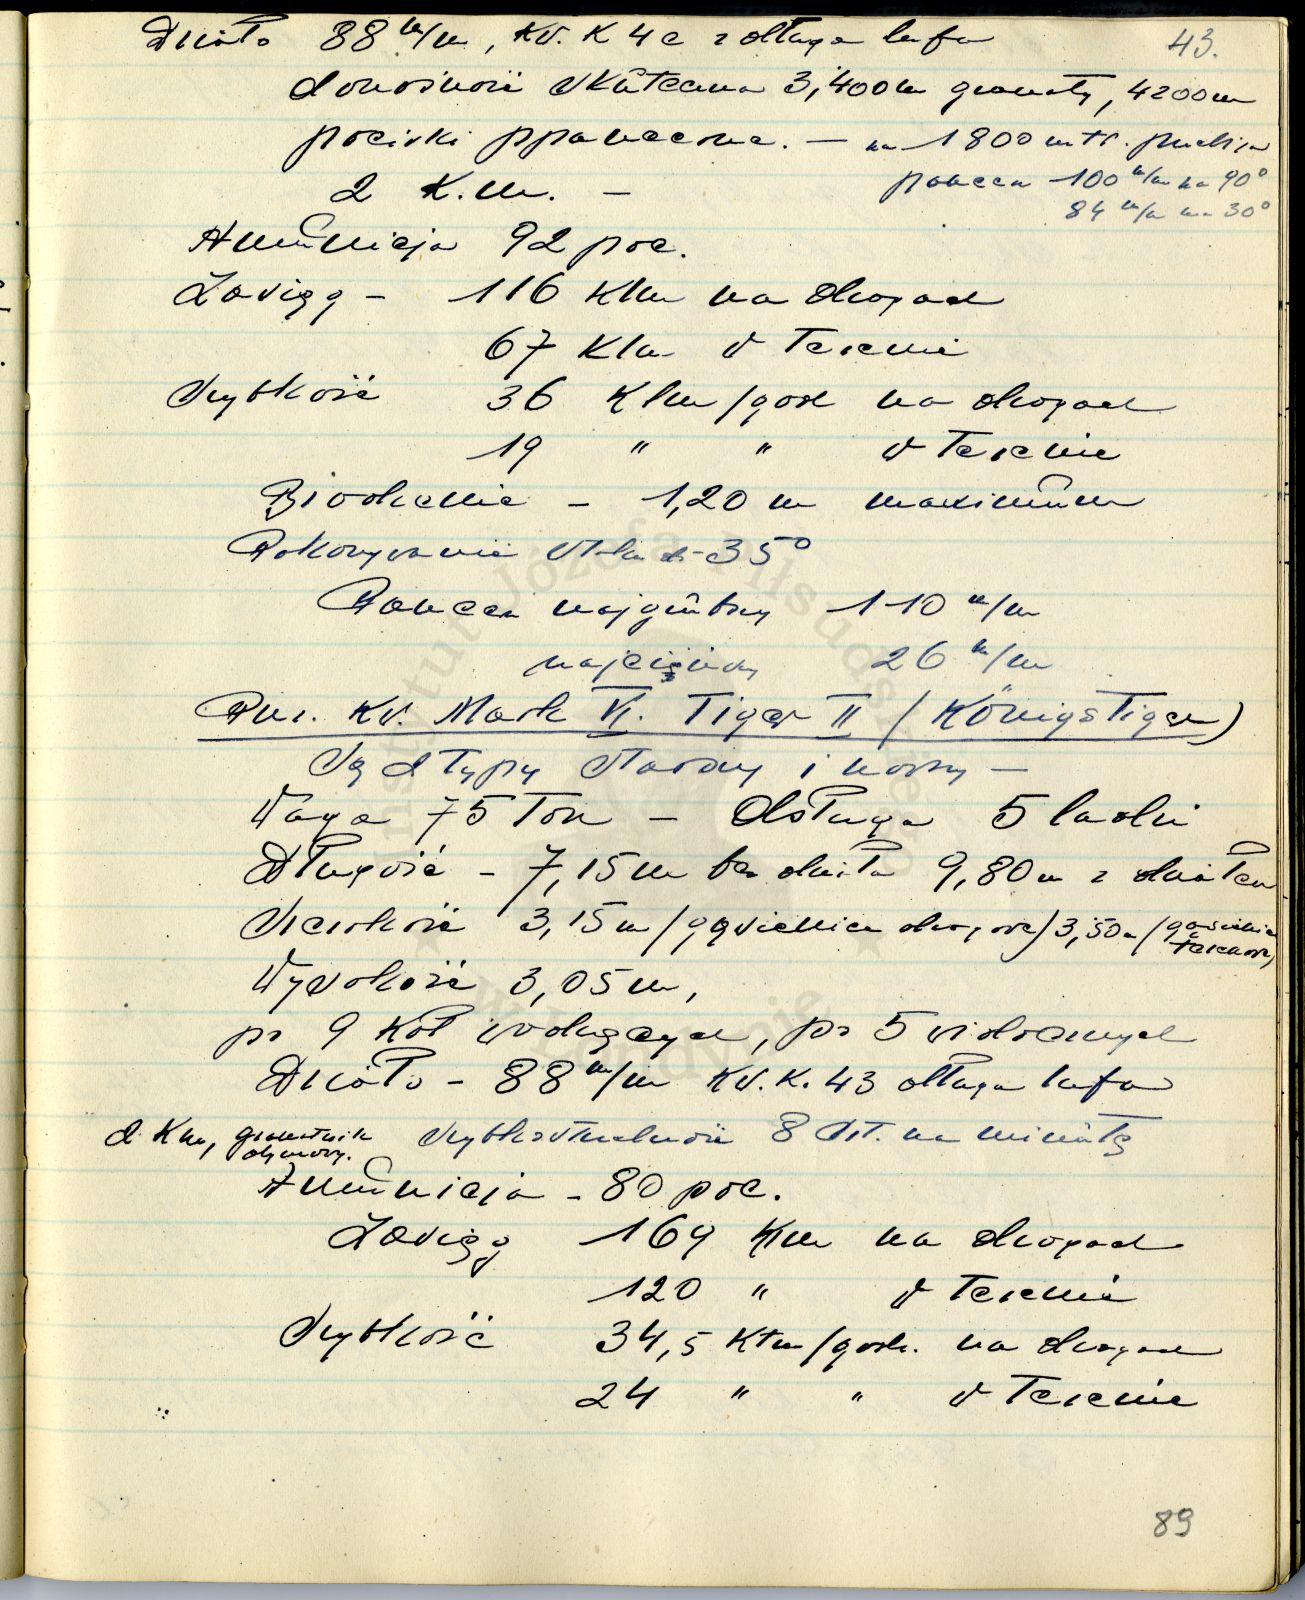 43.
Działo 88 m/m, KW. K 4 c z długą lufą
donośność skuteczna 3,400 m granaty, 4200 m
pociski ppancerne. — na 1800 mtr. przebija
pancerz 100 m/m na 90°
84 m/m na 30°
2 K.m. —
Amunicja 92 poc.
Zasięg - 116 Klm na drogach
67 Klm w terenie
Szybkość 36 Klm/godz na drogach
19 " " w terenie
Brodzenie - 1,20 m maximum
Pokonywanie stoku do 35°
Pancerz najgrubszy 110 m/m
najcieńszy 26 m/m
Pz. Kw. Mark VI. Tiger II (KönigsTiger)
Są 2 typy starszy i nowszy —
Waga 75 Ton — Obsługa 5 ludzi
Długość - 7,15 m bez działa 9,80 m z działem
Szerokość 3,15 m (gąsienica drogowa) 3,50 m (gąsienica terenowa)
Wysokość 3,05 m,
po 9 kół wodzących, po 5 widocznych
Działo - 88 m/m KW. K. 43 długa lufa
2 Km, granatnik dymowy. szybkostrzelność 8 strz. na minutę
Amunicja - 80 poc.
Zasięg 169 Klm na drogach
120 " w terenie
Szybkość 34,5 Klm/godz. na drogach
24 " " w terenie
89
Instytut Józefa Piłsudskiego